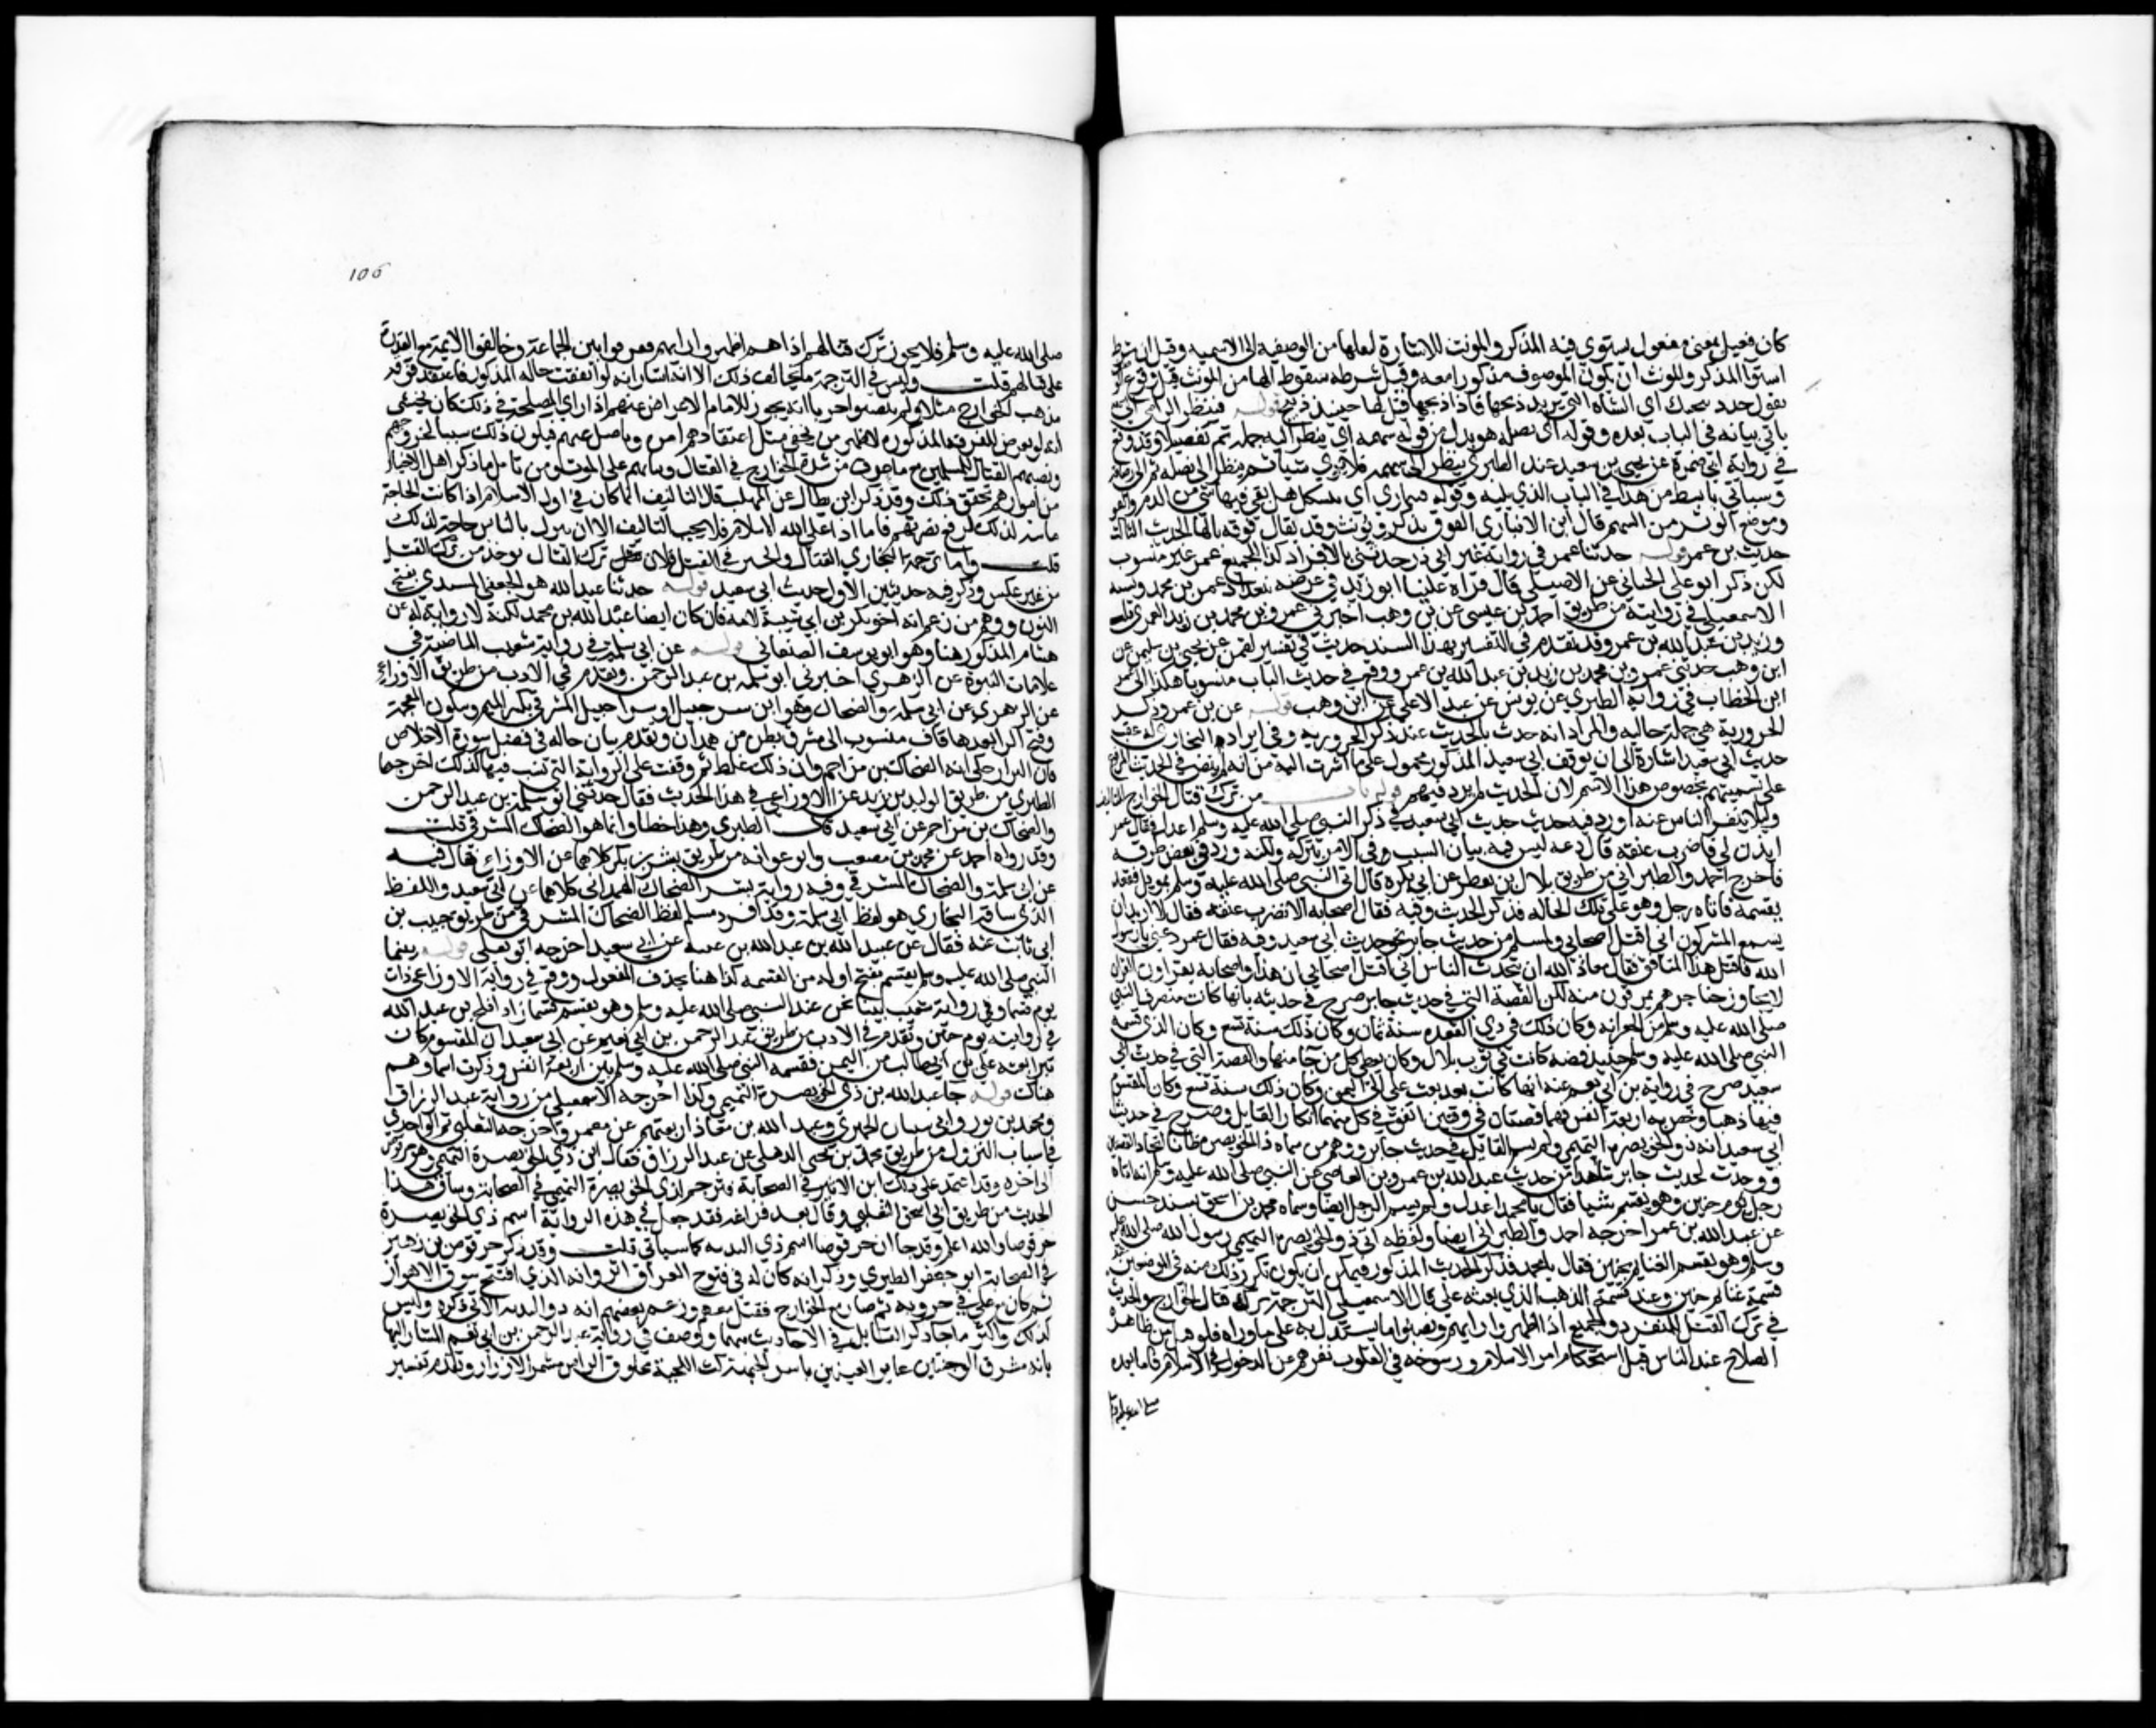 كان فعيل بمعنى مفعول يستوي فيه المذكر والمونث للاشارة لنقلها من الوصفيه الى الاسميه وقيل ان شرط
استوا المذكر والمونث ان يكون الموصوف مذكورا معه وقيل شرطه سقوط الها من المونث قبل وقوع
تقول خذ ذبيحتك اي الشاة التي تريد ذبحها فاذا ذبحتها قيل لها حينيذ ذبيح قوله فينظر الرامي الى
ياتي بيانه في الباب بعده وقوله الى نصله هو بدل من قوله سهمه اي ينظر اليه جملة ثم تفصيلا وقد وقع
في رواية ابي ضمرة عن يحيى بن سعيد عند الطبري ينظر الى سهمه فلا يري شيا ثم ينظر الى نصله ثم الى رصافه
وسياتي بابسط من هذا في الباب الذي يليه وقوله فيتماري اي يتشكك هل بقي فيها شي من الدم والفوق
وموضع الوتر من السهم قال ابن الانباري الفوق يذكر ويونث وقد يقال فوقه بالها الحديث الثالث
حديث بن عمر قوله حدثنا عمر في رواية غير ابي ذر حدثني بالافراد كذا للجميع عمر غير منسوب
لكن ذكر ابو علي الجياني عن الاصيلي قال قراه علينا ابو زيد في عرضه ببغداد عمر بن محمد ونسبه
الاسمعيلي في روايته من طريق احمد بن عيسى عن بن وهب اخبرني عمر بن محمد بن زيد العمري قلت
وزيد بن عبد الله بن عمر وقد تقدم في التفسير بهذا السند حديث في تفسير لقمن عن يحيى بن سليمن عن
ابن وهب حدثني عمر بن محمد بن زيد بن عبد الله بن عمر ووقع في حديث الباب منسوبا هكذا الى عمر
ابن الخطاب في رواية الطبري عن يونس عن عبد الاعلى عن ابن وهب قوله عن بن عمر وذكر
الحرورية هي جملة حاليه والمراد انه حدث بالحديث عند ذكر الحرورية وفي ايراد البخاري له عقب
حديث ابي سعيد اشارة الى ان توقف ابي سعيد المذكور محمول على ما اشرت اليه من انه لم ينص في الحديث المرفوع
على تسميتهم بخصوص هذا الاسم لان الحديث لم يرد فيهم قوله باب من ترك قتال الخوارج للتالف
وليلا ينفر الناس عنه اورد فيه حديث حديث ابي سعيد في ذكر النبي صلى الله عليه وسلم اعدل فقال عمر
ايذن لي فاضرب عنقه قال دعه ليس فيه بيان السبب وفي الامر بتركه ولكنه ورد في بعض طرقه
فاخرج احمد والطبراني من طريق بلال بن بقطر عن ابي بكرة قال اتي النبي صلى الله عليه وسلم بمويل فقعد
يقسمه فاتاه رجل وهو على تلك الحاله فذكر الحديث وفيه فقال اصحابه الا تضرب عنقه فقال لا اريد ان
يسمع المشركون اني اقتل اصحابي ولمسلم من حديث جابر نحو حديث ابي سعيد وفيه فقال عمر دعني يا رسول
الله فاقتل هذا المنافق فقال معاذ الله ان يتحدث الناس اني اقتل اصحابي ان هذا واصحابه يقراون القران
لايجاوز حناجرهم يمرقون منه لكن القصة التي في حديث جابر صرح في حديثه بانها كانت منصرف النبي
صلى الله عليه وسلم من الجعرانه وكان ذلك في ذي القعده سنة ثمان وكان ذلك سنة تسع وكان الذي قسمه
النبي صلى الله عليه وسلم حينيذ فضه كانت في ثوب بلال وكان يعطي كل من جا منها والقصة التي في حديث ابي
سعيد صرح في رواية بن ابي نعم عنه انها كانت بعد بعث علي الى اليمن وكان ذلك سنة تسع وكان المقسوم
فيها ذهبا وخص به اربعة انفس فهما قصتان في وقتين اتفق في كل منهما انكار القايل وصرح في حديث
ابي سعيد انه ذو الخويصره التميمي ولم يسم القايل في حديث جابر ووهم من سماه ذا الخويصره ظانا اتحاد القصتين
ووجدت لحديث جابر شاهدا من حديث عبد الله بن عمرو بن العاصي عن النبي صلى الله عليه وسلم انه اتاه
رجل يوم حنين وهو يقسم شيا فقال يا محمد اعدل ولم يسم الرجل ايضا وسماه محمد بن اسحق بسند حسن
عن عبد الله بن عمر اخرجه احمد والطبراني ايضا ولفظه اتى ذو الخويصره التميمي رسول الله صلى الله عليه
وسلم وهو يقسم الغنايم بحنين فقال يا محمد فذكر الحديث المذكور فيمكن ان يكون تكرر ذلك منه في الموضعين
قسمة غنايم حنين وعند قسمة الذهب الذي بعثه علي قال الاسمعيلي الترجمة بترك قتال الخوارج والحديث
في ترك القتل للمنفرد والجميع اذا اظهروا رايهم ونصبوا ما يستدل به على ما وراه فلو هل من ظاهره
الصلاح عند الناس قبل استحكام امر الاسلام ورسوخه في القلوب نفرهم عن الدخول في الاسلام فاما بعده
صلى الله عليه وسلم
106
صلى الله عليه وسلم فلا يجوز ترك قتالهم اذا هم اظهروا رايهم وفرقوا بين الجماعة وخالفوا الايمة مع القدرة
على قتالهم قلت وليس في الترجمة ما يخالف ذلك الا انه اشار انه لو اتفقت حاله المذكور فاعتقد فرقة
مذهب الخوارج مثلا ولم ينصبوا حربا انه يجوز للامام الاعراض عنهم اذا راي المصلحة في ذلك كان يخشى
انه لو تعرض للفرقة المذكوره لاظهر من يخفي مثل اعتقادهم امره وناضل عنهم فيكون ذلك سببا لخروجهم
ونصبهم القتال للمسلمين مع ما عرف من شدة الخوارج في القتال وثباتهم على الموت ومن تامل ما ذكر اهل الاخبار
من امورهم تحقق ذلك وقد ذكر ابن بطال عن المهلب قال التاليف انما كان في اول الاسلام اذا كانت الحاجة
ماسة لذلك لدفع مضرتهم فاما اذ اعلى الله الاسلام فلا يجب التاليف الا ان ينزل بالناس حاجة لذلك
قلت واما ترجمة البخاري القتال والخبر في القتل فلان ترك القتال يوخذ من ترك القتل
من غير عكس وذكر فيه حديثين الاول حديث ابي سعيد قوله حدثنا عبد الله هو الجعفي المسندي بفتح
النون ووهم من زعم انه اخو بكر بن ابي شيبة لامه فان كان ايضا عبد الله بن محمد لكنه لا رواية له عن
هشام المذكور هنا وهو ابو يوسف الصنعاني قوله عن ابي سلمة في رواية شعيب الماضية في
علامات النبوة عن الزهري اخبرني ابو سلمة بن عبد الرحمن وتقدم في الادب من طريق الاوزاعي
عن الزهري عن ابي سلمة والضحاك وهو ابن شرحبيل او شراحيل المشرقي بكسر الميم وسكون المعجمة
وفتح الرا بعدها قاف منسوب الى مشرق بطن من همدان وتقدم بيان حاله في فضل سورة الاخلاص
وان البزار حكى انه الضحاك بن مزاحم وان ذلك غلط ثم وقفت على الرواية التي نسب فيها كذلك اخرجها
الطبري من طريق الوليد بن مزيد عن الاوزاعي في هذا الحديث فقال حدثني ابو سلمة بن عبد الرحمن
والضحاك بن مزاحم عن ابي سعيد قال الطبري وهذا خطا وانما هو الضحاك المشرقي قلت
وقد رواه احمد عن محمد بن مصعب وابو عوانة من طريق بشر بن بكر كلاهما عن الاوزاعي فقال فيه
عن ابي سلمة والضحاك المشرقي وفيه رواية بشر الضحاك الهمداني كلاهما عن ابي سعيد واللفظ
الذي ساقه البخاري هو لفظ ابي سلمة وقد افرد مسلم لفظ الضحاك المشرقي من طريق حبيب بن
ابي ثابت عنه فقال عن عبيد الله بن عبد الله بن عتبة عن ابي سعيد اخرجه ابو يعلى قوله بينما
النبي صلى الله عليه وسلم يقسم بفتح اوله من القسمة كذا هنا بحذف المفعول ووقع في رواية الاوزاعي ذات
يوم قسما وفي رواية شعيب بينا نحن عند النبي صلى الله عليه وسلم وهو يقسم قسما زاد افلح بن عبد الله
في روايته يوم حنين وتقدم في الادب من طريق عبد الرحمن بن ابي نعم عن ابي سعيد ان المقسوم كان
تبرا بعثه علي بن ابي طالب من اليمن فقسمه النبي صلى الله عليه وسلم بين اربعة انفس وذكرت اسماوهم
هناك قوله جا عبد الله بن ذي الخويصرة التميمي وكذا اخرجه الاسمعيلي من رواية عبد الرزاق
ومحمد بن ثور وابي سفيان الحميري وعبد الله بن معاذ اربعتهم عن معمر واخرجه الثعلبي ثم الواحدي
في اسباب النزول من طريق محمد بن يحيى الذهلي عن عبد الرزاق فقال ابن ذي الخويصرة التميمي وهو حرقوص
الى اخره وقد اعتمد على ذلك ابن الاثير في الصحابة فترجم لذي الخويصرة التميمي في الصحابة وساق هذا
الحديث من طريق ابي اسحق الثعلبي وقال بعد فراغه فقد جعل في هذه الرواية اسم ذي الخويصرة
حرقوصا والله اعلم وقد جا ان حرقوصا اسم ذي الثديه كما سياتي قلت وقد ذكر حرقوص بن زهير
في الصحابة ابو جعفر الطبري وذكر انه كان له في فتوح العراق اثر وانه الذي افتتح سوق الاهواز
ثم كان مع علي في حروبه ثم صار مع الخوارج فقتل معهم وزعم بعضهم انه ذو الثدية الاتي ذكره وليس
كذلك واكثر ما جا ذكر القايل في الاحاديث مبهما ووصف في رواية عبد الرحمن بن ابي نعم المشار اليها
بانه مشرف الوجنتين غاير العينين ناشز الجبهة كث اللحية محلوق الراس مشمر الازار وتقدم تفسير